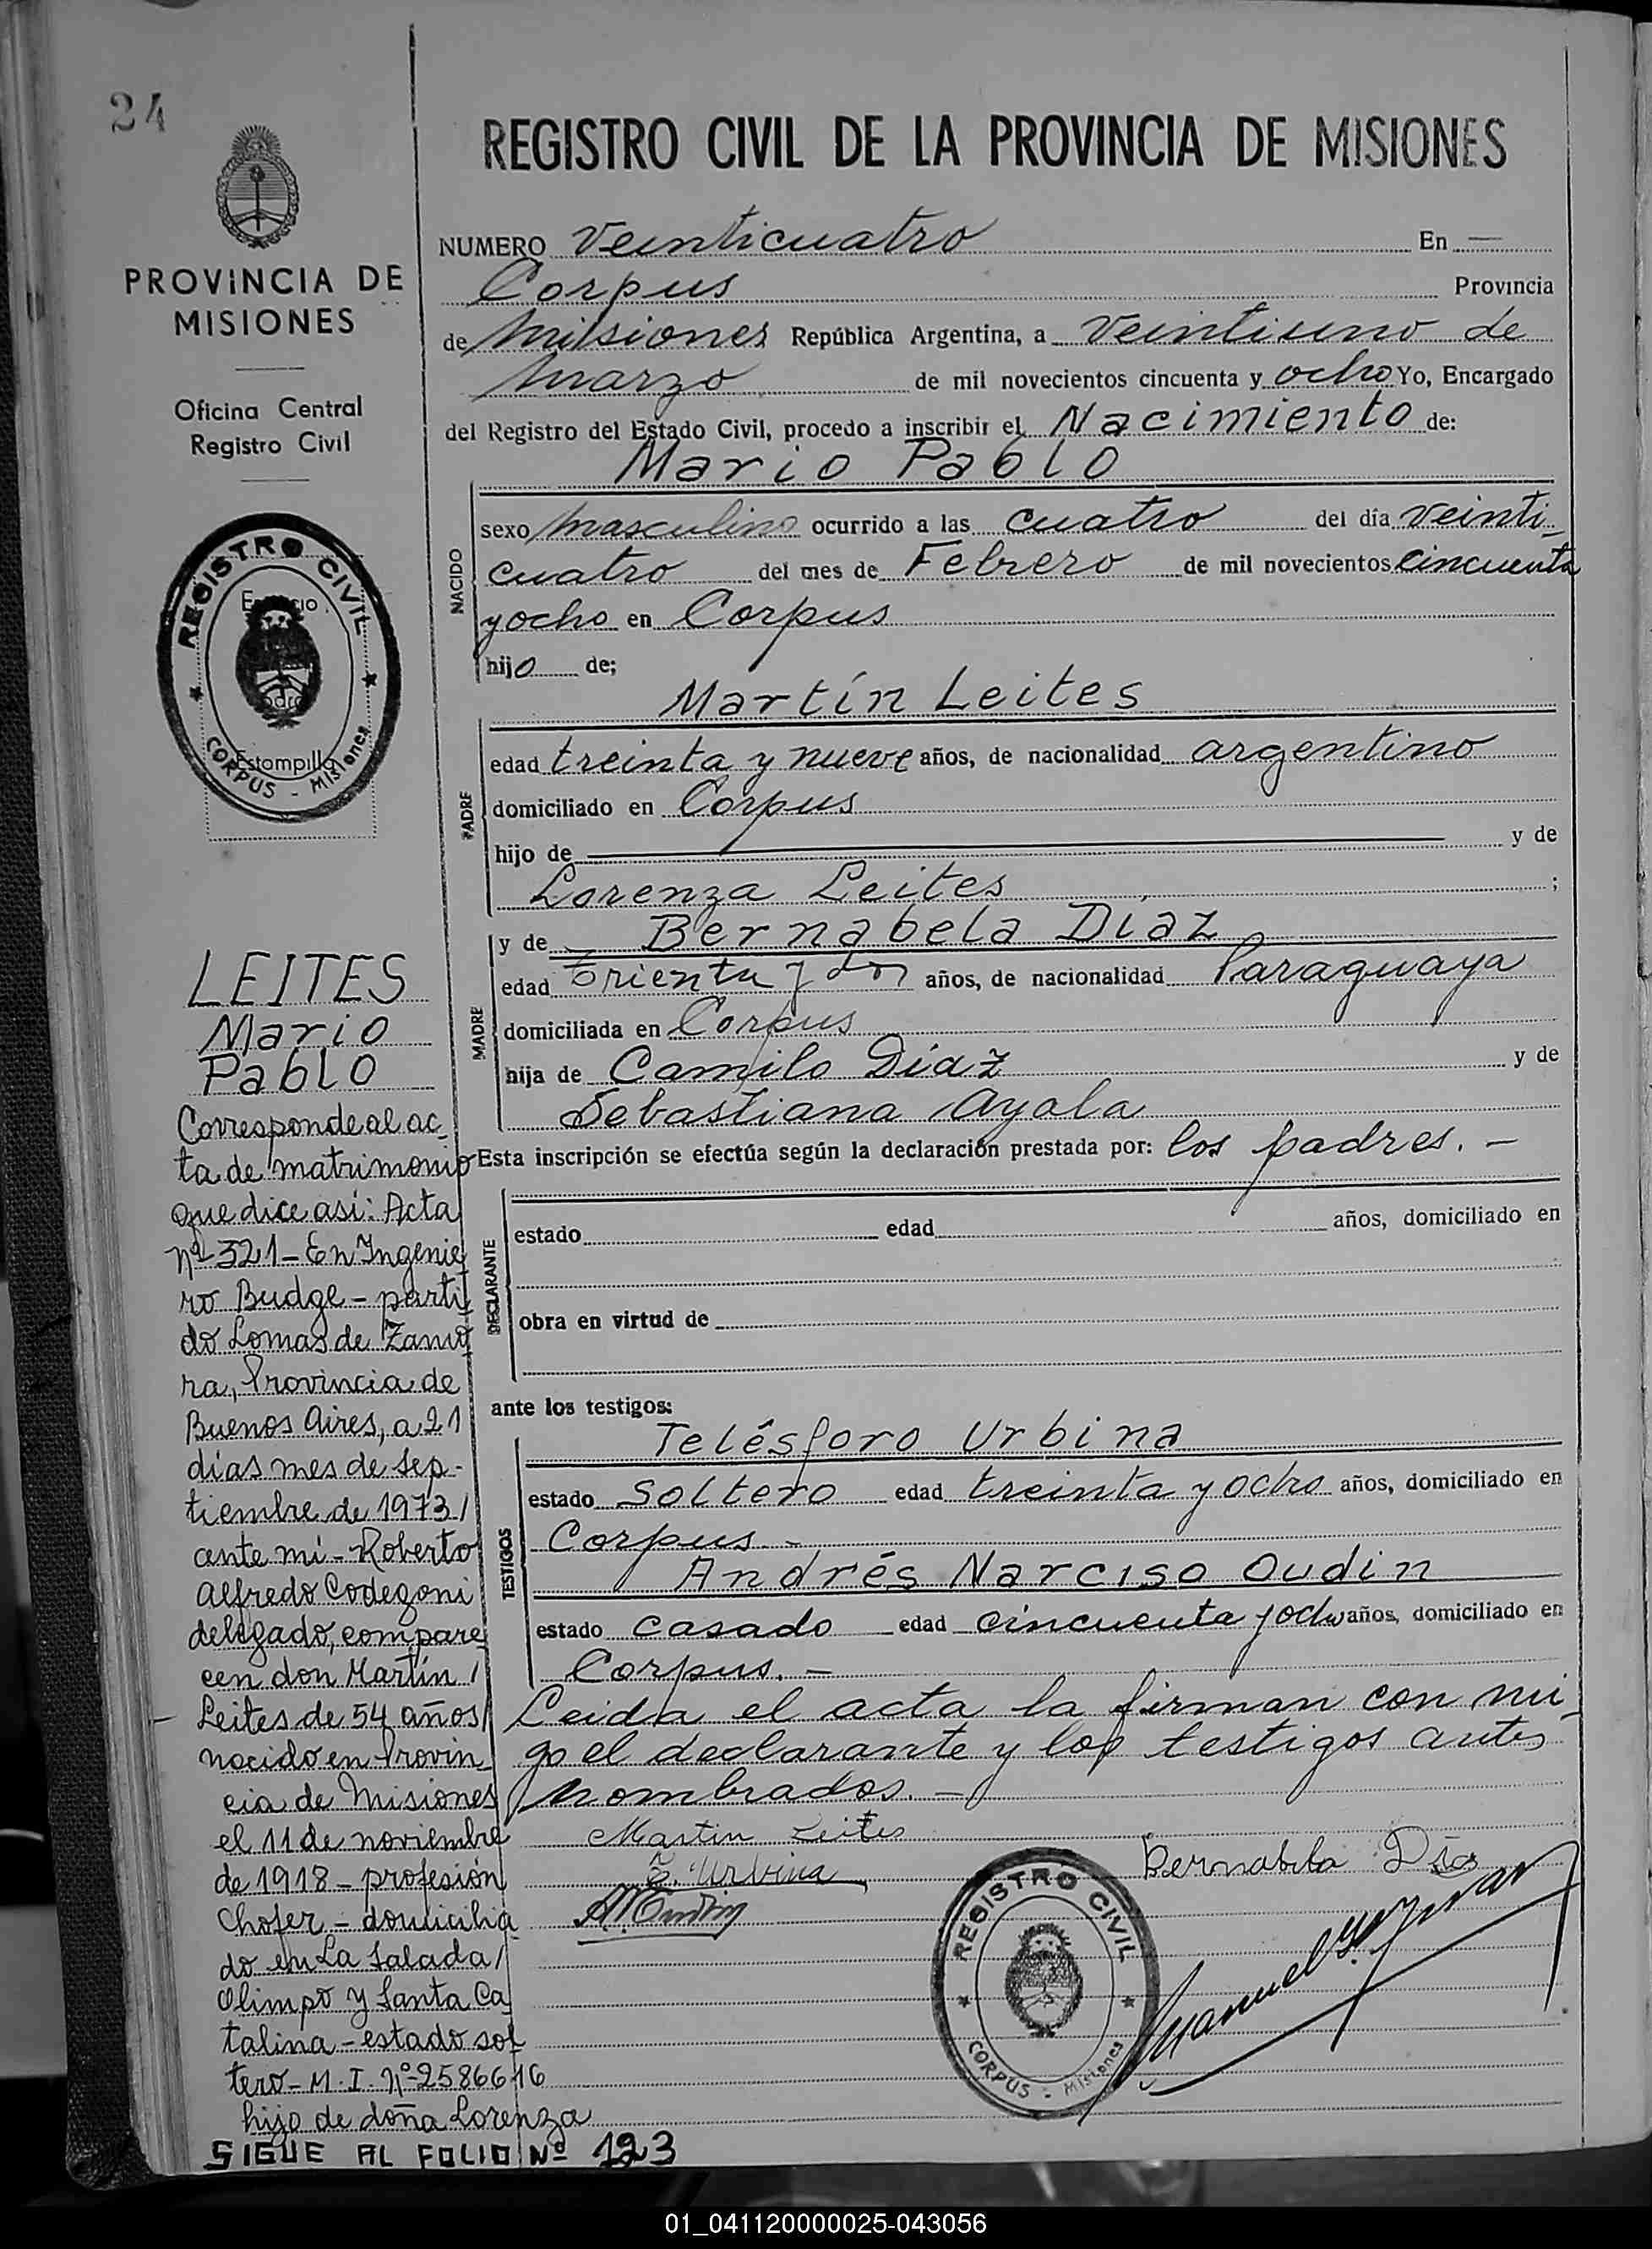 24
REGISTRO CIVIL DE LA PROVINCIA DE MISIONES
PROVINCIA DE
MISIONES
Oficina Central
Registro Civil
REGISTRO CIVIL
CORPUS - Misiones
Estampilla
LEITES
Mario
Pablo
Corresponde al ac
ta de matrimonio
que dice así: Acta
nº 321 - En Ingenie
ro Budge - parti
do Lomas de Zamo
ra, Provincia de
Buenos Aires, a 21
días mes de sep-
tiembre de 1973/
ante mí - Roberto
Alfredo Codegoni
delegado, compare
cen don Martín /
Leites de 54 años/
nacido en Provin
cia de Misiones
el 11 de noviembre
de 1918 - profesión
chofer - domicilia
do en La Salada/
Olimpo y Santa Ca
talina - estado sol
tero - M. I. Nº 2586616
hijo de doña Lorenza
SIGUE AL FOLIO Nº 123
NUMERO Veinticuatro En —
Corpus Provincia
de Misiones República Argentina, a Veintiuno de
Marzo de mil novecientos cincuenta y ocho Yo, Encargado
del Registro del Estado Civil, procedo a inscribir el Nacimiento de:
Mario Pablo
NACIDO
sexo masculino ocurrido a las cuatro del día veinti
cuatro del mes de Febrero de mil novecientos cincuenta
y ocho en Corpus
hijo de;
Martín Leites
PADRE
edad treinta y nueve años, de nacionalidad argentino
domiciliado en Corpus
hijo de y de
Lorenza Leites ;
y de Bernabela Díaz
MADRE
edad trienta y dos años, de nacionalidad Paraguaya
domiciliada en Corpus
hija de Camilo Díaz y de
Sebastiana Ayala
Esta inscripción se efectúa según la declaración prestada por: los padres. -
DECLARANTE
estado edad años, domiciliado en
obra en virtud de
ante los testigos:
Telésforo Urbina
TESTIGOS
estado Soltero edad treinta y ocho años, domiciliado en
Corpus. -
Andrés Narciso Oudin
estado casado edad cincuenta y ocho años, domiciliado en
Corpus. -
Leida el acta la firman con mi
go el declarante y los testigos antes
nombrados. -
Martin Leites
T. Urbina
Bernabela Día
REGISTRO CIVIL
CORPUS - Misiones
01_041120000025-043056